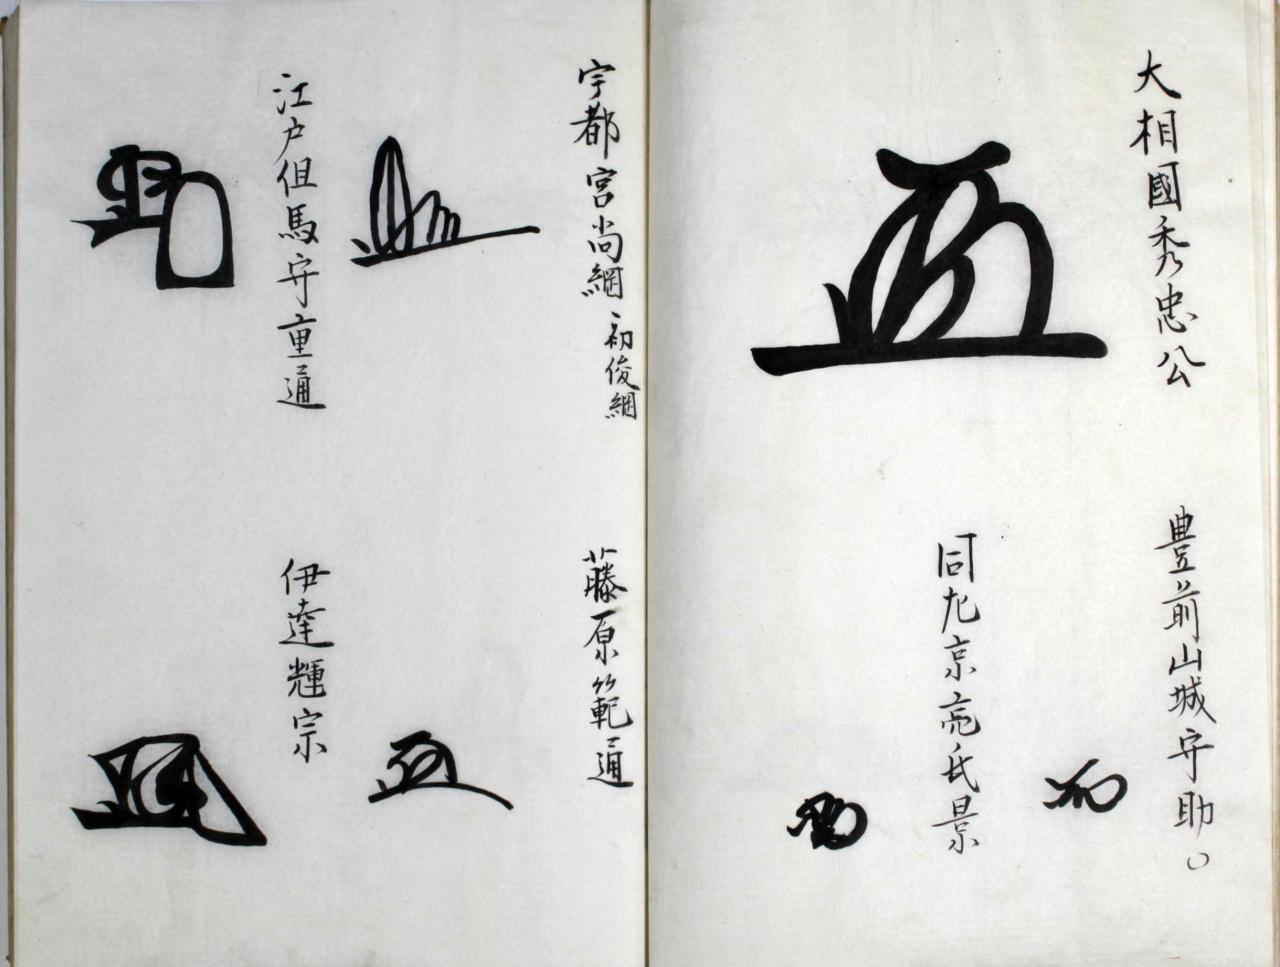 大相國秀忠公
豊前山城守助〇
同左京亮氏景
宇都宮尚綱 初俊綱
藤原範通
江戸但馬守重通
伊達輝宗